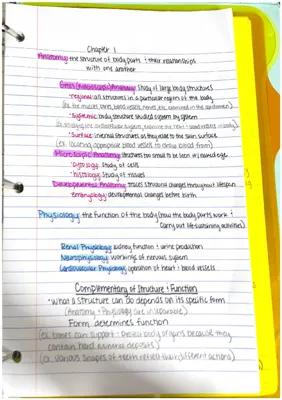 Chapter 1
Anatomy: the structure of body parts & their relationships
with one another
Gross (Macroscopic) Anatomy: study of large body structures
·regional: all structures in a particular region of the body
(ex. the muscles, bones, blood vessels, nerves, etc. examined in the abdomen)
·Systemic: body structure studied system by system
(ex. studying the cardiovascular system, examine the heart & blood vessels in body)
·Surface: internal structures as they relate to the skin surface
(ex. locating appropriate blood vessels to draw blood from)
Microscopic Anatomy: structures too small to be seen w/ naked eye
·cytology: study of cells
·histology: study of tissues
Developmental Anatomy: traces structural changes throughout lifespan
·embryology: developmental changes before birth
Physiology: the function of the body (how the body parts work &
carry out life-sustaining activities)
Renal Physiology: kidney function & urine production
Neurophysiology: workings of nervous system
Cardiovascular Physiology: operation of heart & blood vessels
Complementary of Structure & Function
·What a structure can do depends on its specific form
(Anatomy & Physiology are inseparable)
Form determines function
(ex. bones can support & protect body organs because they
contain hard mineral deposits)
(ex. various shapes of teeth reflect their different actions)